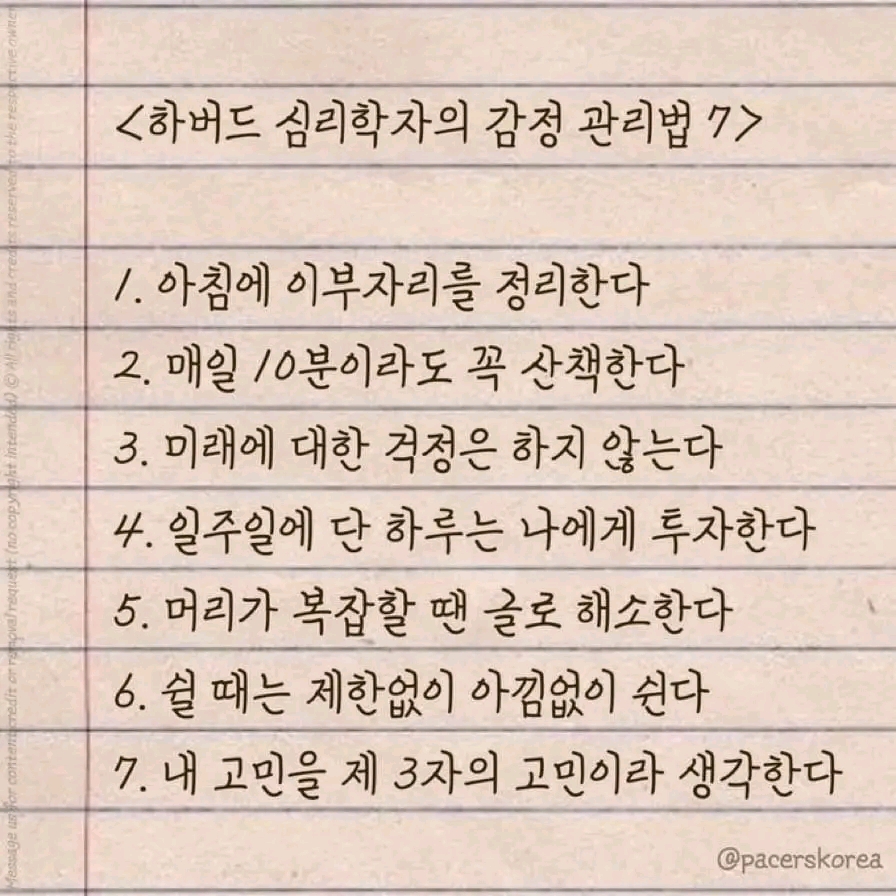 <하버드 심리학자의 감정 관리법 7>
1. 아침에 이부자리를 정리한다
2. 매일 10분이라도 꼭 산책한다
3. 미래에 대한 걱정은 하지 않는다
4. 일주일에 단 하루는 나에게 투자한다
5. 머리가 복잡할 땐 글로 해소한다
6. 쉴 때는 제한없이 아낌없이 쉰다
7. 내 고민을 제 3자의 고민이라 생각한다
@pacerskorea
Message us for content credit or removal request (no copyright intended) © All rights and credits reserved to the respective owner